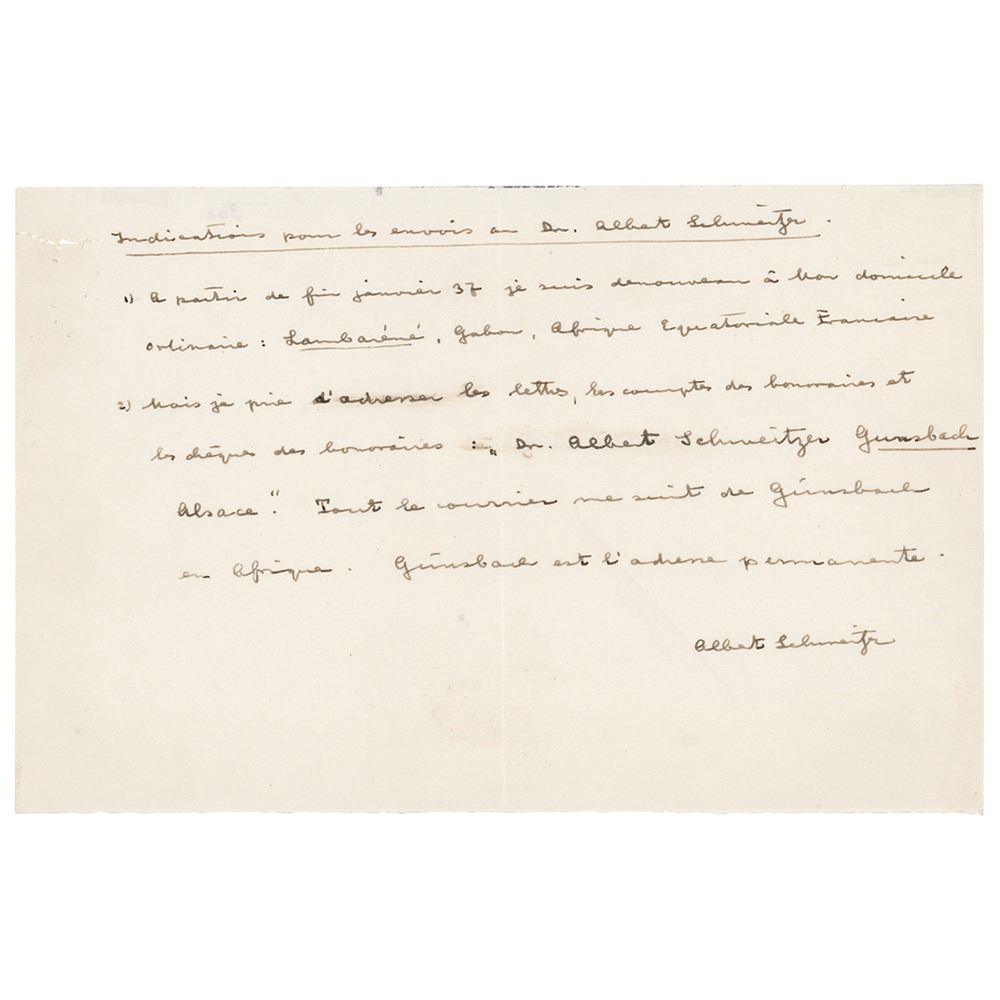 Indications pour les envois au Dr. Albert Schweitzer.
1) A partir de fin janvier 37 je suis denouveau à Mon domicile
ordinaire : Lambaréné, Gabon, Afrique Equatoriale Francaise
2) Mais je prie d'adresser les lettres, les comptes des honoraires et
les chèques des honoraires : „ Dr. Albert Schweitzer Gunsbach
Alsace". Tout le courrier me suit de Günsbach
en Afrique. Günsbach est l'adresse permanente.
Albert Schweitzer